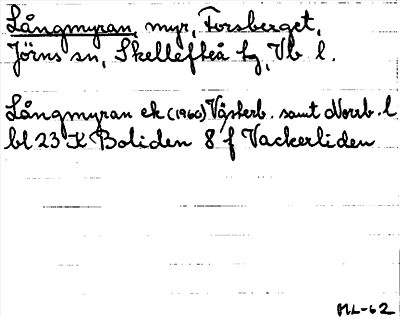 Långmyran, myr, Forsberget,
Jörns sn, Skellefteå tg, Vb l.
Långmyran ek (1960) Västerb. samt Norrb. l
bl 23 K Boliden 8 f Vackerliden
ML-62